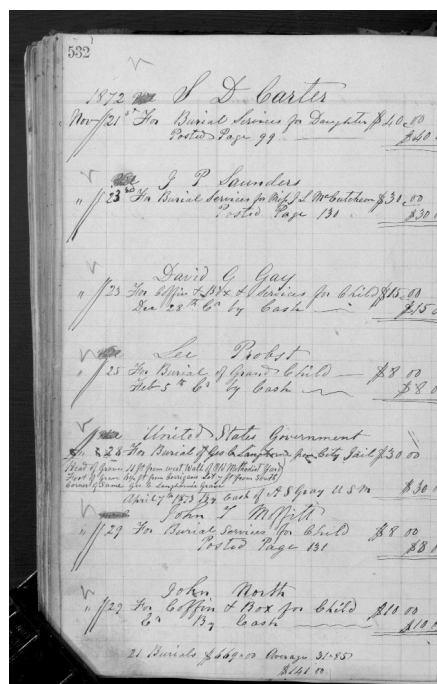 532
1872 S D Carter
Nov 21st For Burial Services for Daughter $40.00
Posted Page 99 — $40.0
J P Saunders
" 23rd For Burial Services for Mifs J L McCutcheon $30.00
Posted Page 130 $30.0
David G Gay
" 23 For Coffin & Box & Services for Child $15.00
Dec 28th Cr by Cash — $15.0
Lee Probst
" 25 For Burial of Grand Child — $8.00
Feb 5th Cr by Cash $8.0
United States Government
" 28 For Burial of Geo from City Jail $30.00
Head of Grave 11 ft from west Wall of Old Methodist Yard
Foot of Grave ft from Lot 7 ft from South
Corner of Same Geo Grave
April 7th 1873 By Cash of A S Gray U S M $30.0
John T Moffitt
" 29 For Burial Services for Child $8.00
Posted Page 131 $8.0
John North
" 29 For Coffin & Box for Child $10.00
Cr By Cash $10.0
21 Burials $669.00 Average 31-85
$141.00